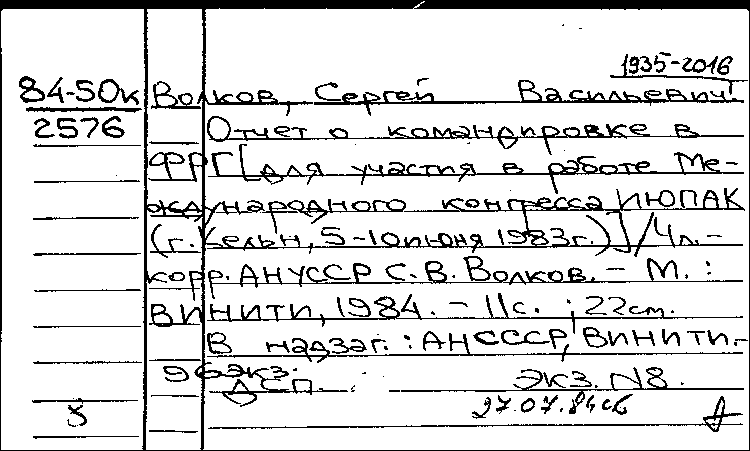 1935-2016
84-50к Волков, Сергей Васильевич
2576 Отчет о командировке в
ФРГ [для участия в работе Ме-
ждународного конгресса ИЮПАК
(г. Кельн, 5-10 июня 1983г.)] / Чл.-
корр. АН УССР С. В. Волков. - М. :
ВИНИТИ, 1984. - 11с. ; 22см.
В надзаг. : АН СССР, ВИНИТИ.-
96 экз.
ДСП. Экз. N8.
27.07.84